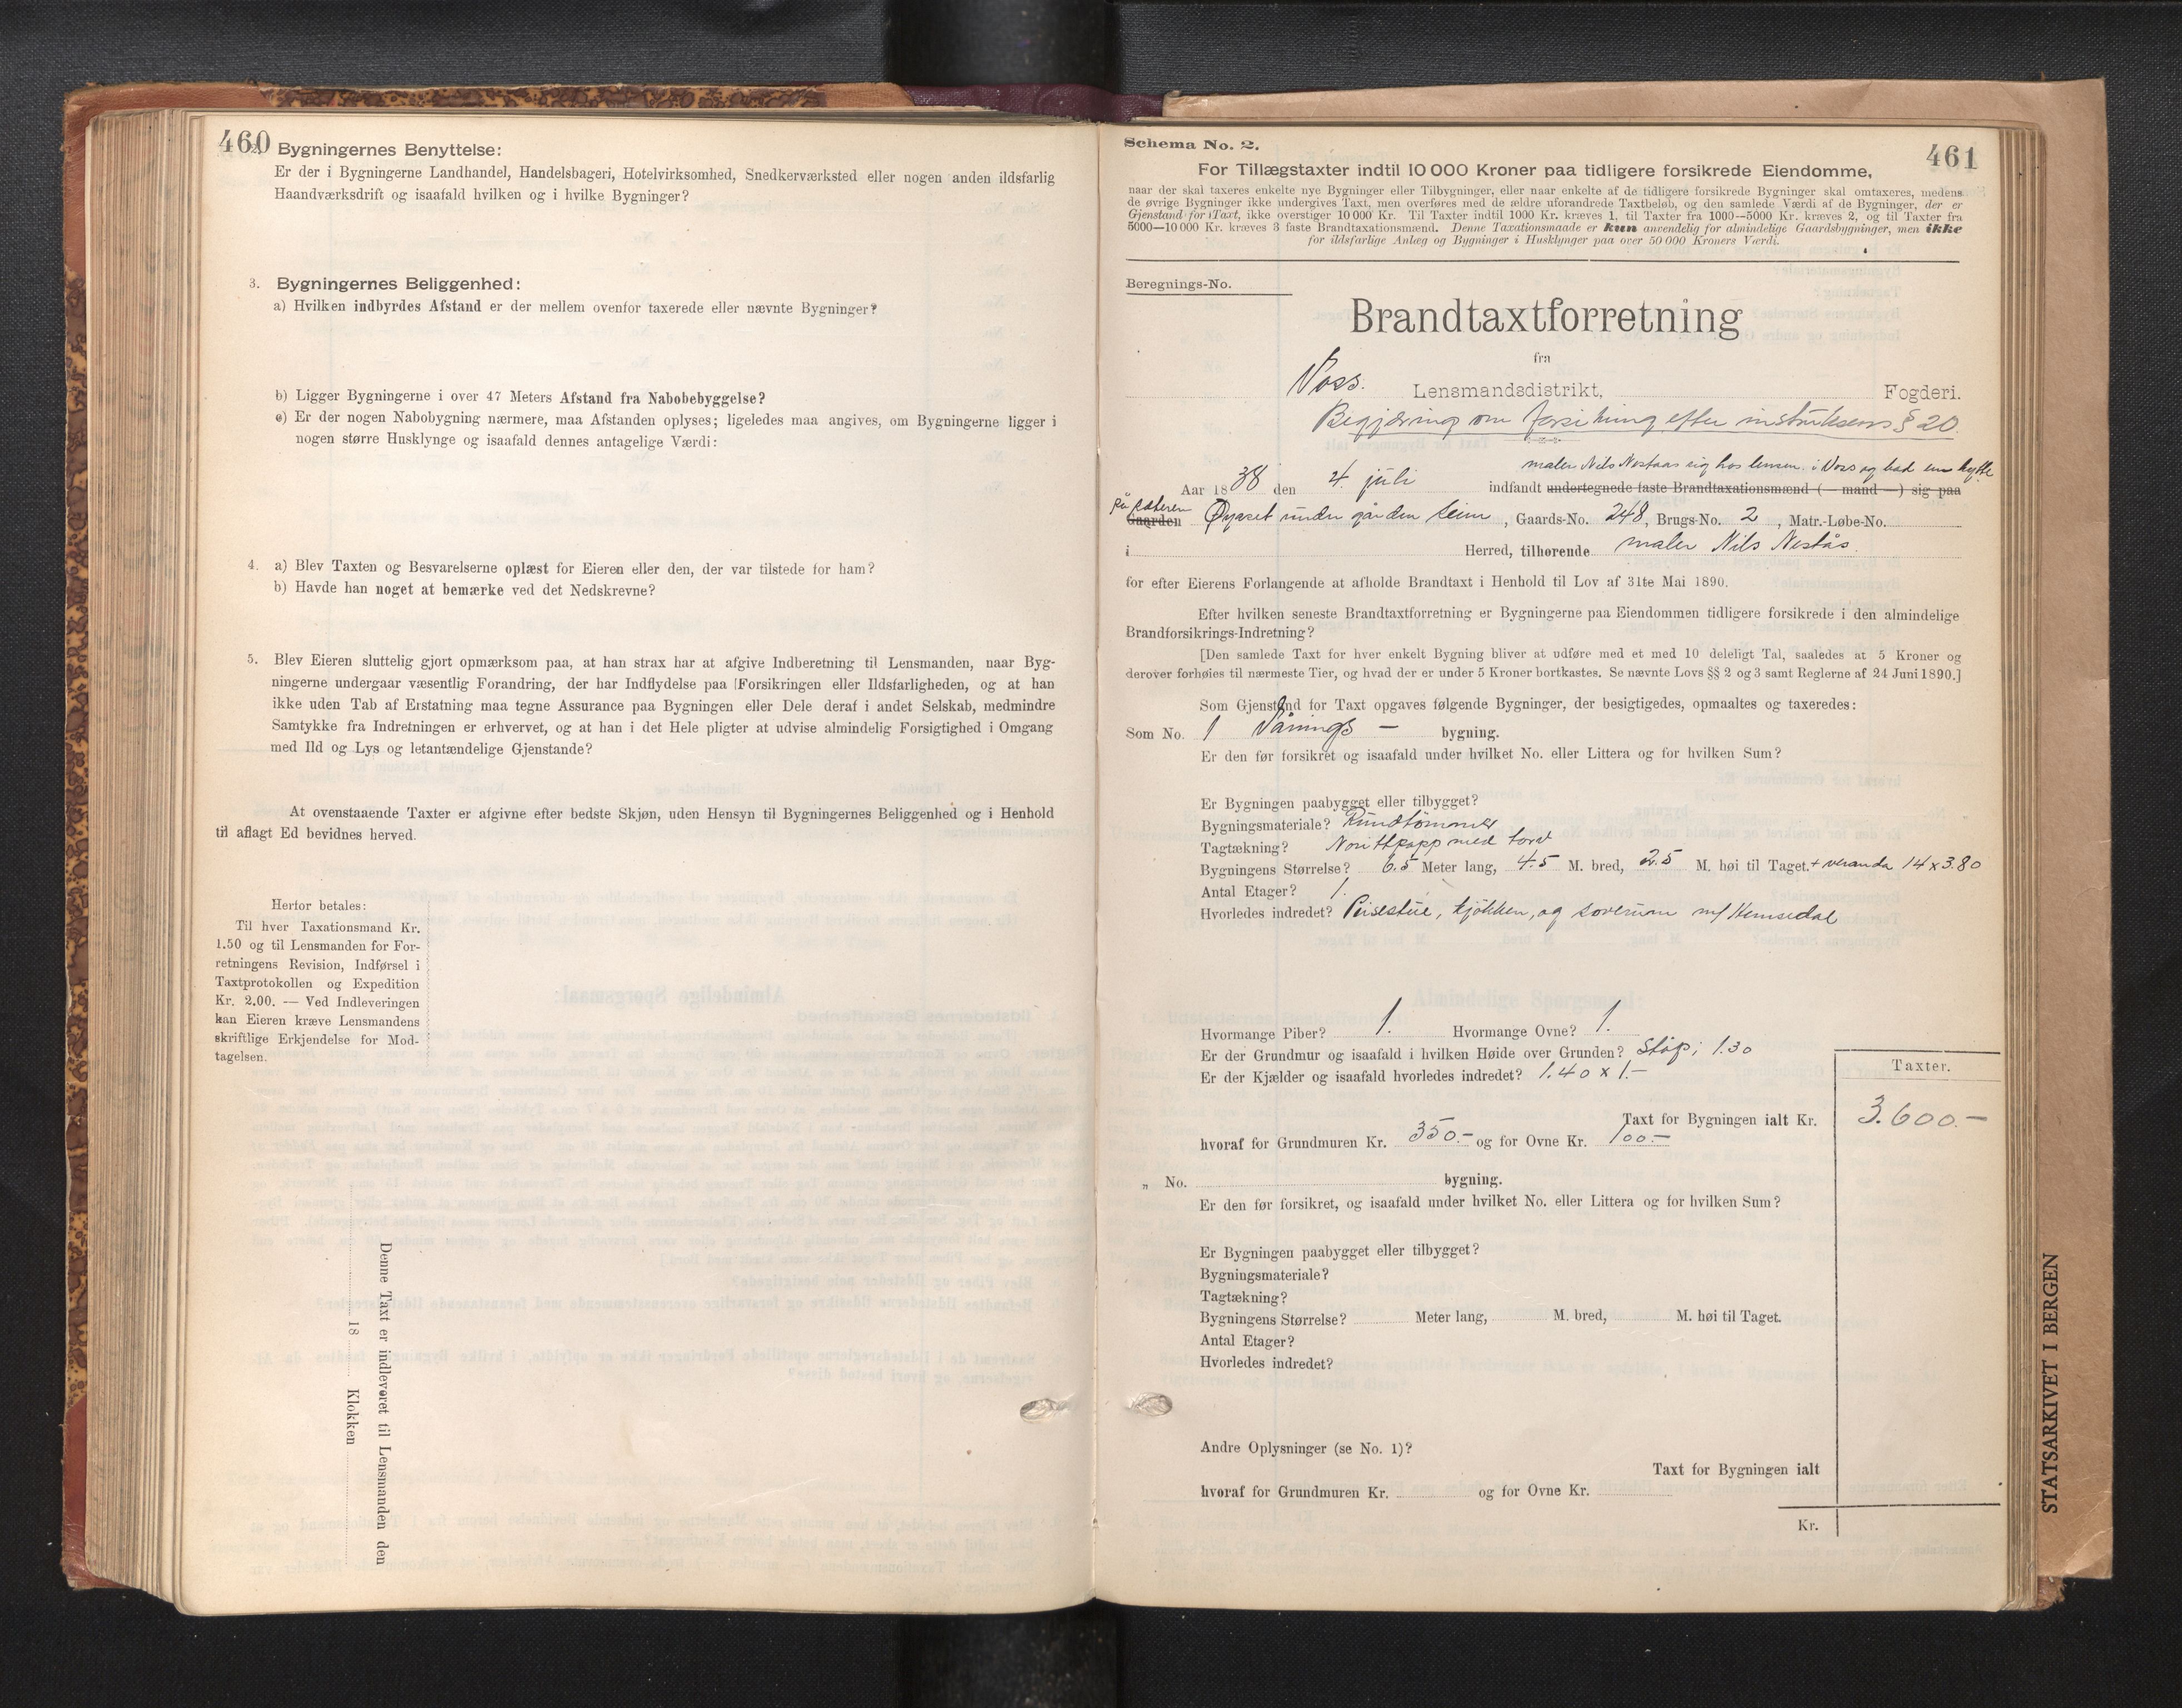 460
2. Bygningernes Benyttelse:
Er der i Bygningerne Landhandel, Handelsbageri, Hotelvirksomhed, Snedkerværksted eller nogen anden ildsfarlig
Haandværksdrift og isaafald hvilken og i hvilke Bygninger?
3. Bygningernes Beliggenhed:
a) Hvilken indbyrdes Afstand er der mellem ovenfor taxerede eller nævnte Bygninger?
b) Ligger Bygningerne i over 47 Meters Afstand fra Nabobebyggelse?
c) Er der nogen Nabobygning nærmere, maa Afstanden oplyses; ligeledes maa angives, om Bygningerne ligger i
nogen større Husklynge og isaafald dennes antagelige Værdi:
4. a) Blev Taxten og Besvarelserne oplæst for Eieren eller den, der var tilstede for ham?
b) Havde han noget at bemærke ved det Nedskrevne?
5. Blev Eieren sluttelig gjort opmærksom paa, at han strax har at afgive Indberetning til Lensmanden, naar Byg-
ningerne undergaar væsentlig Forandring, der har Indflydelse paa Forsikringen eller Ildsfarligheden, og at han
ikke uden Tab af Erstatning maa tegne Assurance paa Bygningen eller Dele deraf i andet Selskab, medmindre
Samtykke fra Indretningen er erhvervet, og at han i det Hele pligter at udvise almindelig Forsigtighed i Omgang
med Ild og Lys og letantændelige Gjenstande?
At ovenstaaende Taxter er afgivne efter bedste Skjøn, uden Hensyn til Bygningernes Beliggenhed og i Henhold
til aflagt Ed bevidnes herved.
Herfor betales:
Til hver Taxationsmand Kr.
1.50 og til Lensmanden for For-
retningens Revision, Indførsel i
Taxtprotokollen og Expedition
Kr. 2.00. — Ved Indleveringen
kan Eieren kræve Lensmandens
skriftlige Erkjendelse for Mod-
tagelsen.
Denne Taxt er indleveret til Lensmanden den
18 Klokken
Schema No. 2.
461
For Tillægstaxter indtil 10 000 Kroner paa tidligere forsikrede Eiendomme,
naar der skal taxeres enkelte nye Bygninger eller Tilbygninger, eller naar enkelte af de tidligere forsikrede Bygninger skal omtaxeres, medens
de øvrige Bygninger ikke undergives Taxt, men overføres med de ældre uforandrede Taxtbeløb, og den samlede Værdi af de Bygninger, der er
Gjenstand for Taxt, ikke overstiger 10 000 Kr. Til Taxter indtil 1000 Kr. kræves 1, til Taxter fra 1000—5000 Kr. kræves 2, og til Taxter fra
5000—10 000 Kr. kræves 3 faste Brandtaxationsmænd. Denne Taxationsmaade er kun anvendelig for almindelige Gaardsbygninger, men ikke
for ildsfarlige Anlæg og Bygninger i Husklynger paa over 50 000 Kroners Værdi.
Beregnings-No.
Brandtaxtforretning
fra
Voss. Lensmandsdistrikt, Fogderi.
Begjæring om forsikring efter instruksens § 20.
maler Nils Nestaas sig hos lensm. i Voss og bad om hytte
Aar 1838 den 4. juli indfandt undertegnede faste Brandtaxationsmænd (— mand —) sig paa
Gaarden under gården Seim, Gaards-No. 248, Brugs-No. 2, Matr.-Løbe-No.
i Herred, tilhørende maler Nils Nestås.
for efter Eierens Forlangende at afholde Brandtaxt i Henhold til Lov af 31te Mai 1890.
Efter hvilken seneste Brandtaxtforretning er Bygningerne paa Eiendommen tidligere forsikrede i den almindelige
Brandforsikrings-Indretning?
[Den samlede Taxt for hver enkelt Bygning bliver at udføre med et med 10 deleligt Tal, saaledes at 5 Kroner og
derover forhøies til nærmeste Tier, og hvad der er under 5 Kroner bortkastes. Se nævnte Lovs §§ 2 og 3 samt Reglerne af 24 Juni 1890.]
Som Gjenstand for Taxt opgaves følgende Bygninger, der besigtigedes, opmaaltes og taxeredes:
Som No. 1 Vånings — bygning.
Er den før forsikret og isaafald under hvilket No. eller Littera og for hvilken Sum?
Er Bygningen paabygget eller tilbygget?
Bygningsmateriale? Rundtømmer
Tagtækning? Norittpapp med torv
Bygningens Størrelse? 6.5 Meter lang, 4.5 M. bred, 2.5 M. høi til Taget. + veranda 14 x 3.80
Antal Etager? 1.
Hvorledes indredet? Peisestue, kjøkken, og soverum m/ Hemsedal
Hvormange Piber? 1. Hvormange Ovne? 1.
Er der Grundmur og isaafald i hvilken Høide over Grunden? Støp; 1.30
Er der Kjælder og isaafald hvorledes indredet? 1.40 x 1.—
Taxter.
Taxt for Bygningen ialt Kr. 3.600.—
hvoraf for Grundmuren Kr. 350.— og for Ovne Kr. 100.—
„ No. bygning.
Er den før forsikret, og isaafald under hvilket No. eller Littera og for hvilken Sum?
Er Bygningen paabygget eller tilbygget?
Bygningsmateriale?
Tagtækning?
Bygningens Størrelse? Meter lang, M. bred, M. høi til Taget.
Antal Etager?
Hvorledes indredet?
Andre Oplysninger (se No. 1)?
Taxt for Bygningen ialt
hvoraf for Grundmuren Kr. og for Ovne Kr.
Kr.
STATSARKIVET I BERGEN